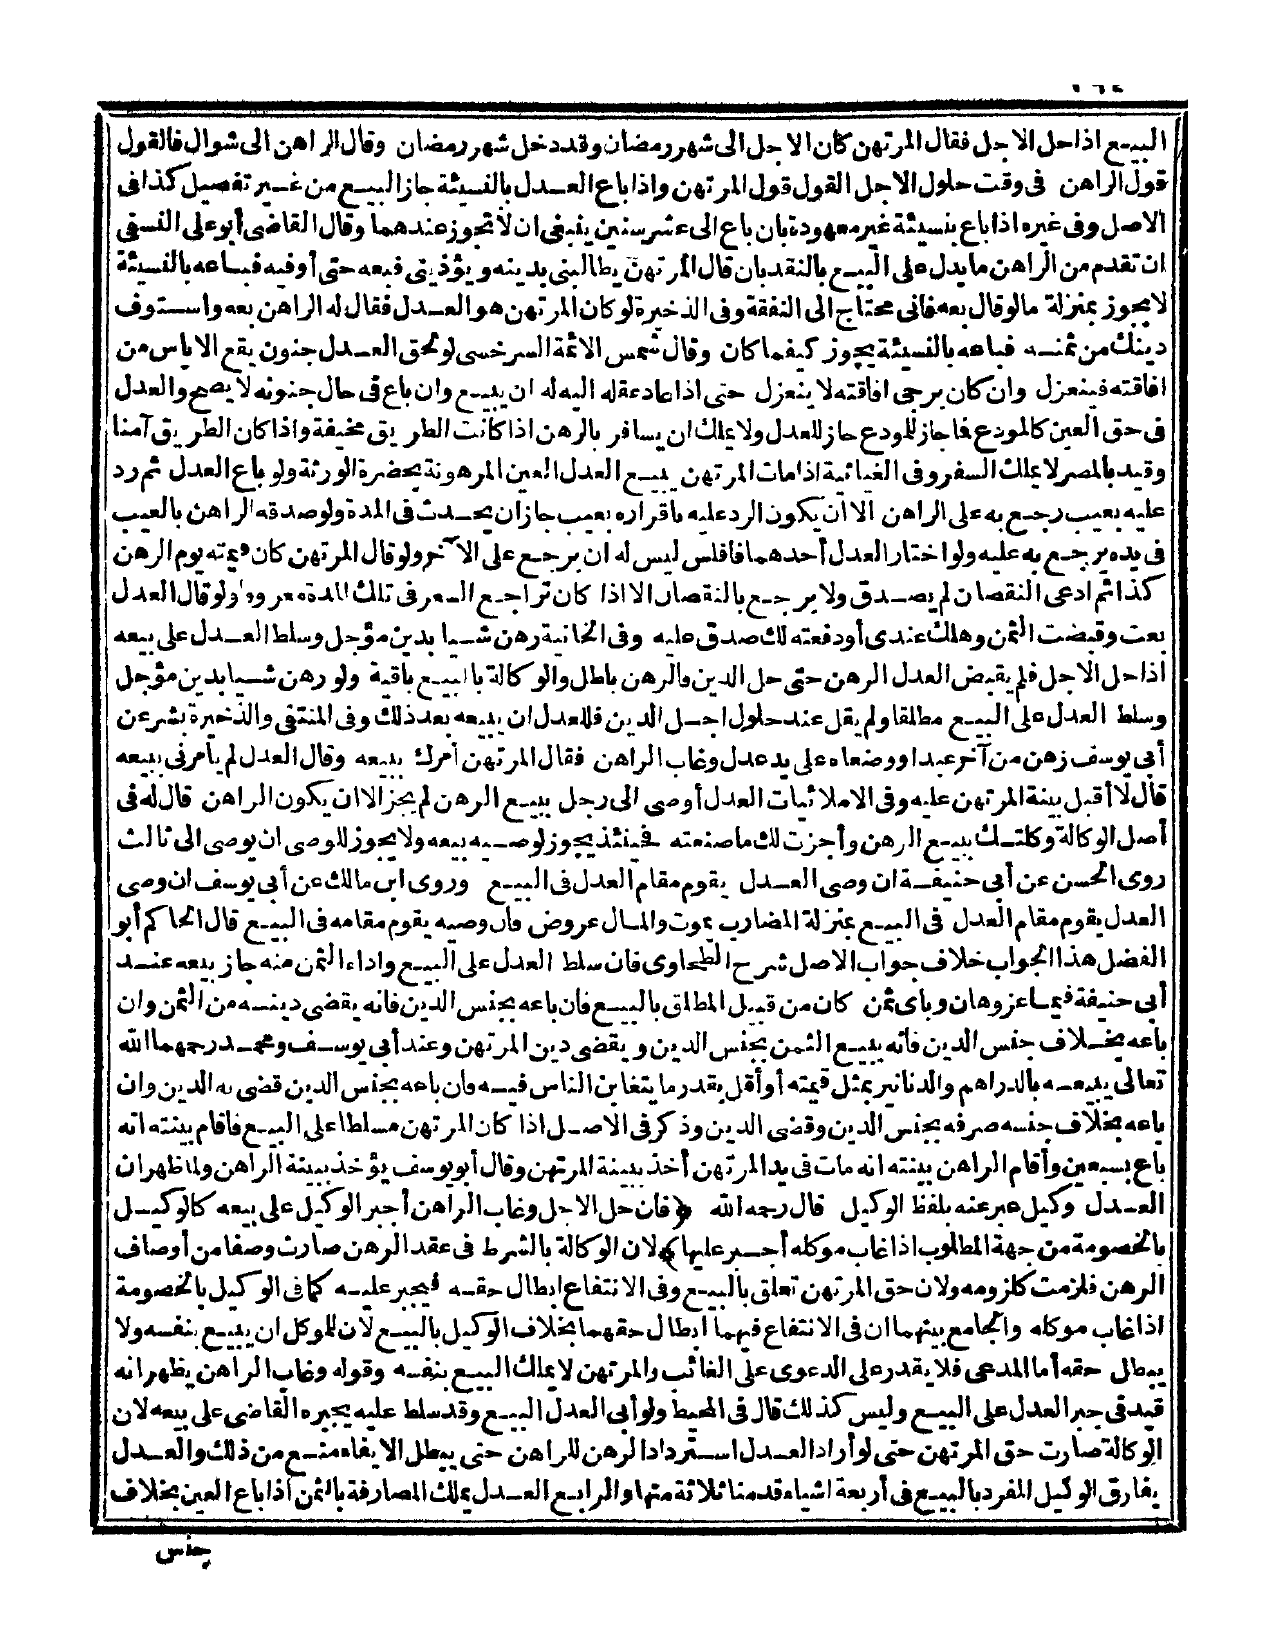 البيع اذا حل الاجل فقال المرتهن كان الاجل الى شهر رمضان وقد دخل شهر رمضان وقال الراهن الى شوال فالقول
قول الراهن فى وقت حلول الاجل القول قول المرتهن واذا باع العدل بالنسيئة جاز البيع من غير تفصيل كذا فى
الاصل وفى غيره اذا باع بنسيئة غير معهودة بان باع الى عشر سنين ينبغى ان لا تجوز عندهما وقال القاضى أبو على النسفى
ان تقدم من الراهن ما يدل على البيع بالنقد بان قال المرتهن يطالبنى بدينه ويؤذينى فبعه حتى أوفيه فباعه بالنسيئة
لا يجوز بمنزلة مالو قال بعه فانى محتاج الى النفقة وفى الذخيرة لو كان المرتهن هو العدل فقال له الراهن بعه واستوف
دينك من ثمنه فباعه بالنسيئة يجوز كيفما كان وقال شمس الائمة السرخسى لو لحق العدل جنون يقع الاياس من
افاقته فينعزل وان كان يرجى افاقته لا ينعزل حتى اذا عاد عقله اليه له ان يبيع وان باع فى حال جنونه لا يصح والعدل
فى حق العين كالمودع فما جاز للمودع جاز للعدل ولا يملك ان يسافر بالرهن اذا كانت الطريق مخيفة واذا كان الطريق آمنا
وقيد بالمصر لا يملك السفر وفى الغياثية اذا مات المرتهن يبيع العدل العين المرهونة بحضرة الورثة ولو باع العدل ثم رد
عليه بعيب رجع به على الراهن الا أن يكون الرد عليه باقراره بعيب جاز ان يحدث فى المدة ولو صدقه الراهن بالعيب
فى يده يرجع به عليه ولو اختار العدل أحدهما فافلس ليس له ان يرجع على الآخر ولو قال المرتهن كان قيمته يوم الرهن
كذا ثم ادعى النقصان لم يصدق ولا يرجع بالنقصان الا اذا كان تراجع السعر فى تلك المدة معروفا ولو قال العدل
بعت وقبضت الثمن وهلك عندى أو دفعته لك صدق عليه وفى الخانية رهن شيا بدين مؤجل وسلط العدل على بيعه
اذا حل الاجل فلم يقبض العدل الرهن حتى حل الدين فالرهن باطل والوكالة بالبيع باقية ولو رهن شيا بدين مؤجل
وسلط العدل على البيع مطلقا ولم يقل عند حلول اجل الدين فللعدل ان يبيعه بعد ذلك وفى المنتقى والذخيرة بشر عن
أبى يوسف رهن من آخر عبدا ووضعاه على يد عدل وغاب الراهن فقال المرتهن أمرك ببيعه وقال العدل لم يأمرنى ببيعه
قال لا أقبل بينة المرتهن عليه وفى الاملاء مات العدل أوصى الى رجل ببيع الرهن لم يجز الا ان يكون الراهن قال له فى
أصل الوكالة وكلتك ببيع الرهن وأجزت لك ما صنعته فحينئذ يجوز لوصيه بيعه ولا يجوز للوصى ان يوصى الى ثالث
روى الحسن عن أبى حنيفة ان وصى العدل يقوم مقام العدل فى البيع وروى ابن مالك عن أبى يوسف ان وصى
العدل يقوم مقام العدل فى البيع بمنزلة المضارب يموت والمال عروض فان وصيه يقوم مقامه فى البيع قال الحاكم أبو
الفضل هذا الجواب خلاف جواب الاصل شرح الطحاوى فان سلط العدل على البيع واداء الثمن منه جاز بيعه عند
أبى حنيفة فيما عز وهان وبأى ثمن كان من قبيل المطلق بالبيع فان باعه بجنس الدين فانه يقضى دينه من الثمن وان
باعه بخلاف جنس الدين فأنه يبيع الثمن بجنس الدين ويقضى دين المرتهن وعند أبى يوسف ومحمد رحمهما الله
تعالى يبيعه بالدراهم والدنانير بمثل قيمته أو أقل بقدر ما يتغابن الناس فيه فان باعه بجنس الدين قضى به الدين وان
باعه بخلاف جنسه صرفه بجنس الدين وقضى الدين وذكر فى الاصل اذا كان المرتهن مسلطا على البيع فاقام بينته انه
باع بسبعين وأقام الراهن بينته انه مات فى يد المرتهن أخذ ببينة المرتهن وقال أبو يوسف يؤخذ ببينة الراهن ولما ظهر ان
العدل وكيل عبر عنه بلفظ الوكيل قال رحمه الله ﴿فان حل الاجل وغاب الراهن أجبر الوكيل على بيعه كالوكيل
بالخصومة من جهة المطلوب اذا غاب موكله أجبر عليها﴾ لان الوكالة بالشرط فى عقد الرهن صارت وصفا من أوصاف
الرهن فلزمت كلزومه ولان حق المرتهن تعلق بالبيع وفى الانتفاع ابطال حقه فيجبر عليه كما فى الوكيل بالخصومة
اذا غاب موكله والجامع بينهما ان فى الانتفاع فيهما ابطال حقهما بخلاف الوكيل بالبيع لان للموكل ان يبيع بنفسه ولا
يبطل حقه أما المدعى فلا يقدر على الدعوى على الغائب والمرتهن لا يملك البيع بنفسه وقوله وغاب الراهن يظهر انه
قيد فى جبر العدل على البيع وليس كذلك قال فى المحيط ولو أبى العدل البيع وقد سلط عليه يجبره القاضى على بيعه لان
الوكالة صارت حق المرتهن حتى لو أراد العدل استرداد الرهن للراهن حتى يبطل الايفاء منع من ذلك والعدل
يفارق الوكيل المفرد بالبيع فى أربعة اشياء قدمنا ثلاثة منها والرابع العدل يملك المصارفة بالثمن اذا باع العين بخلاف
جنس